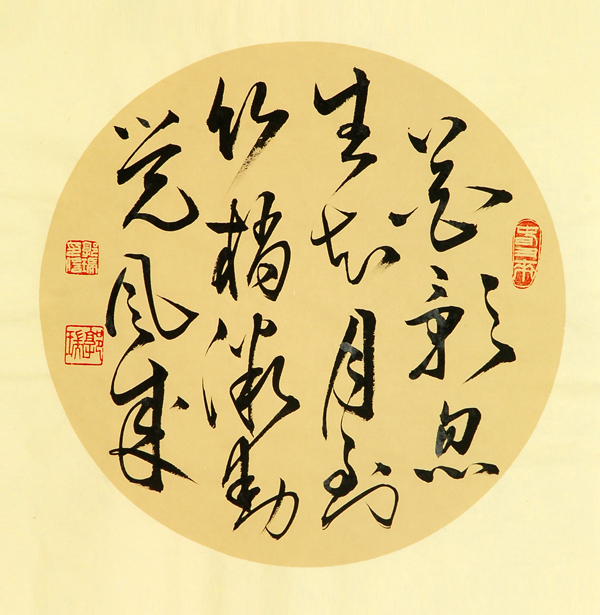 花影忽
生知月到
竹梢微動
覺風來